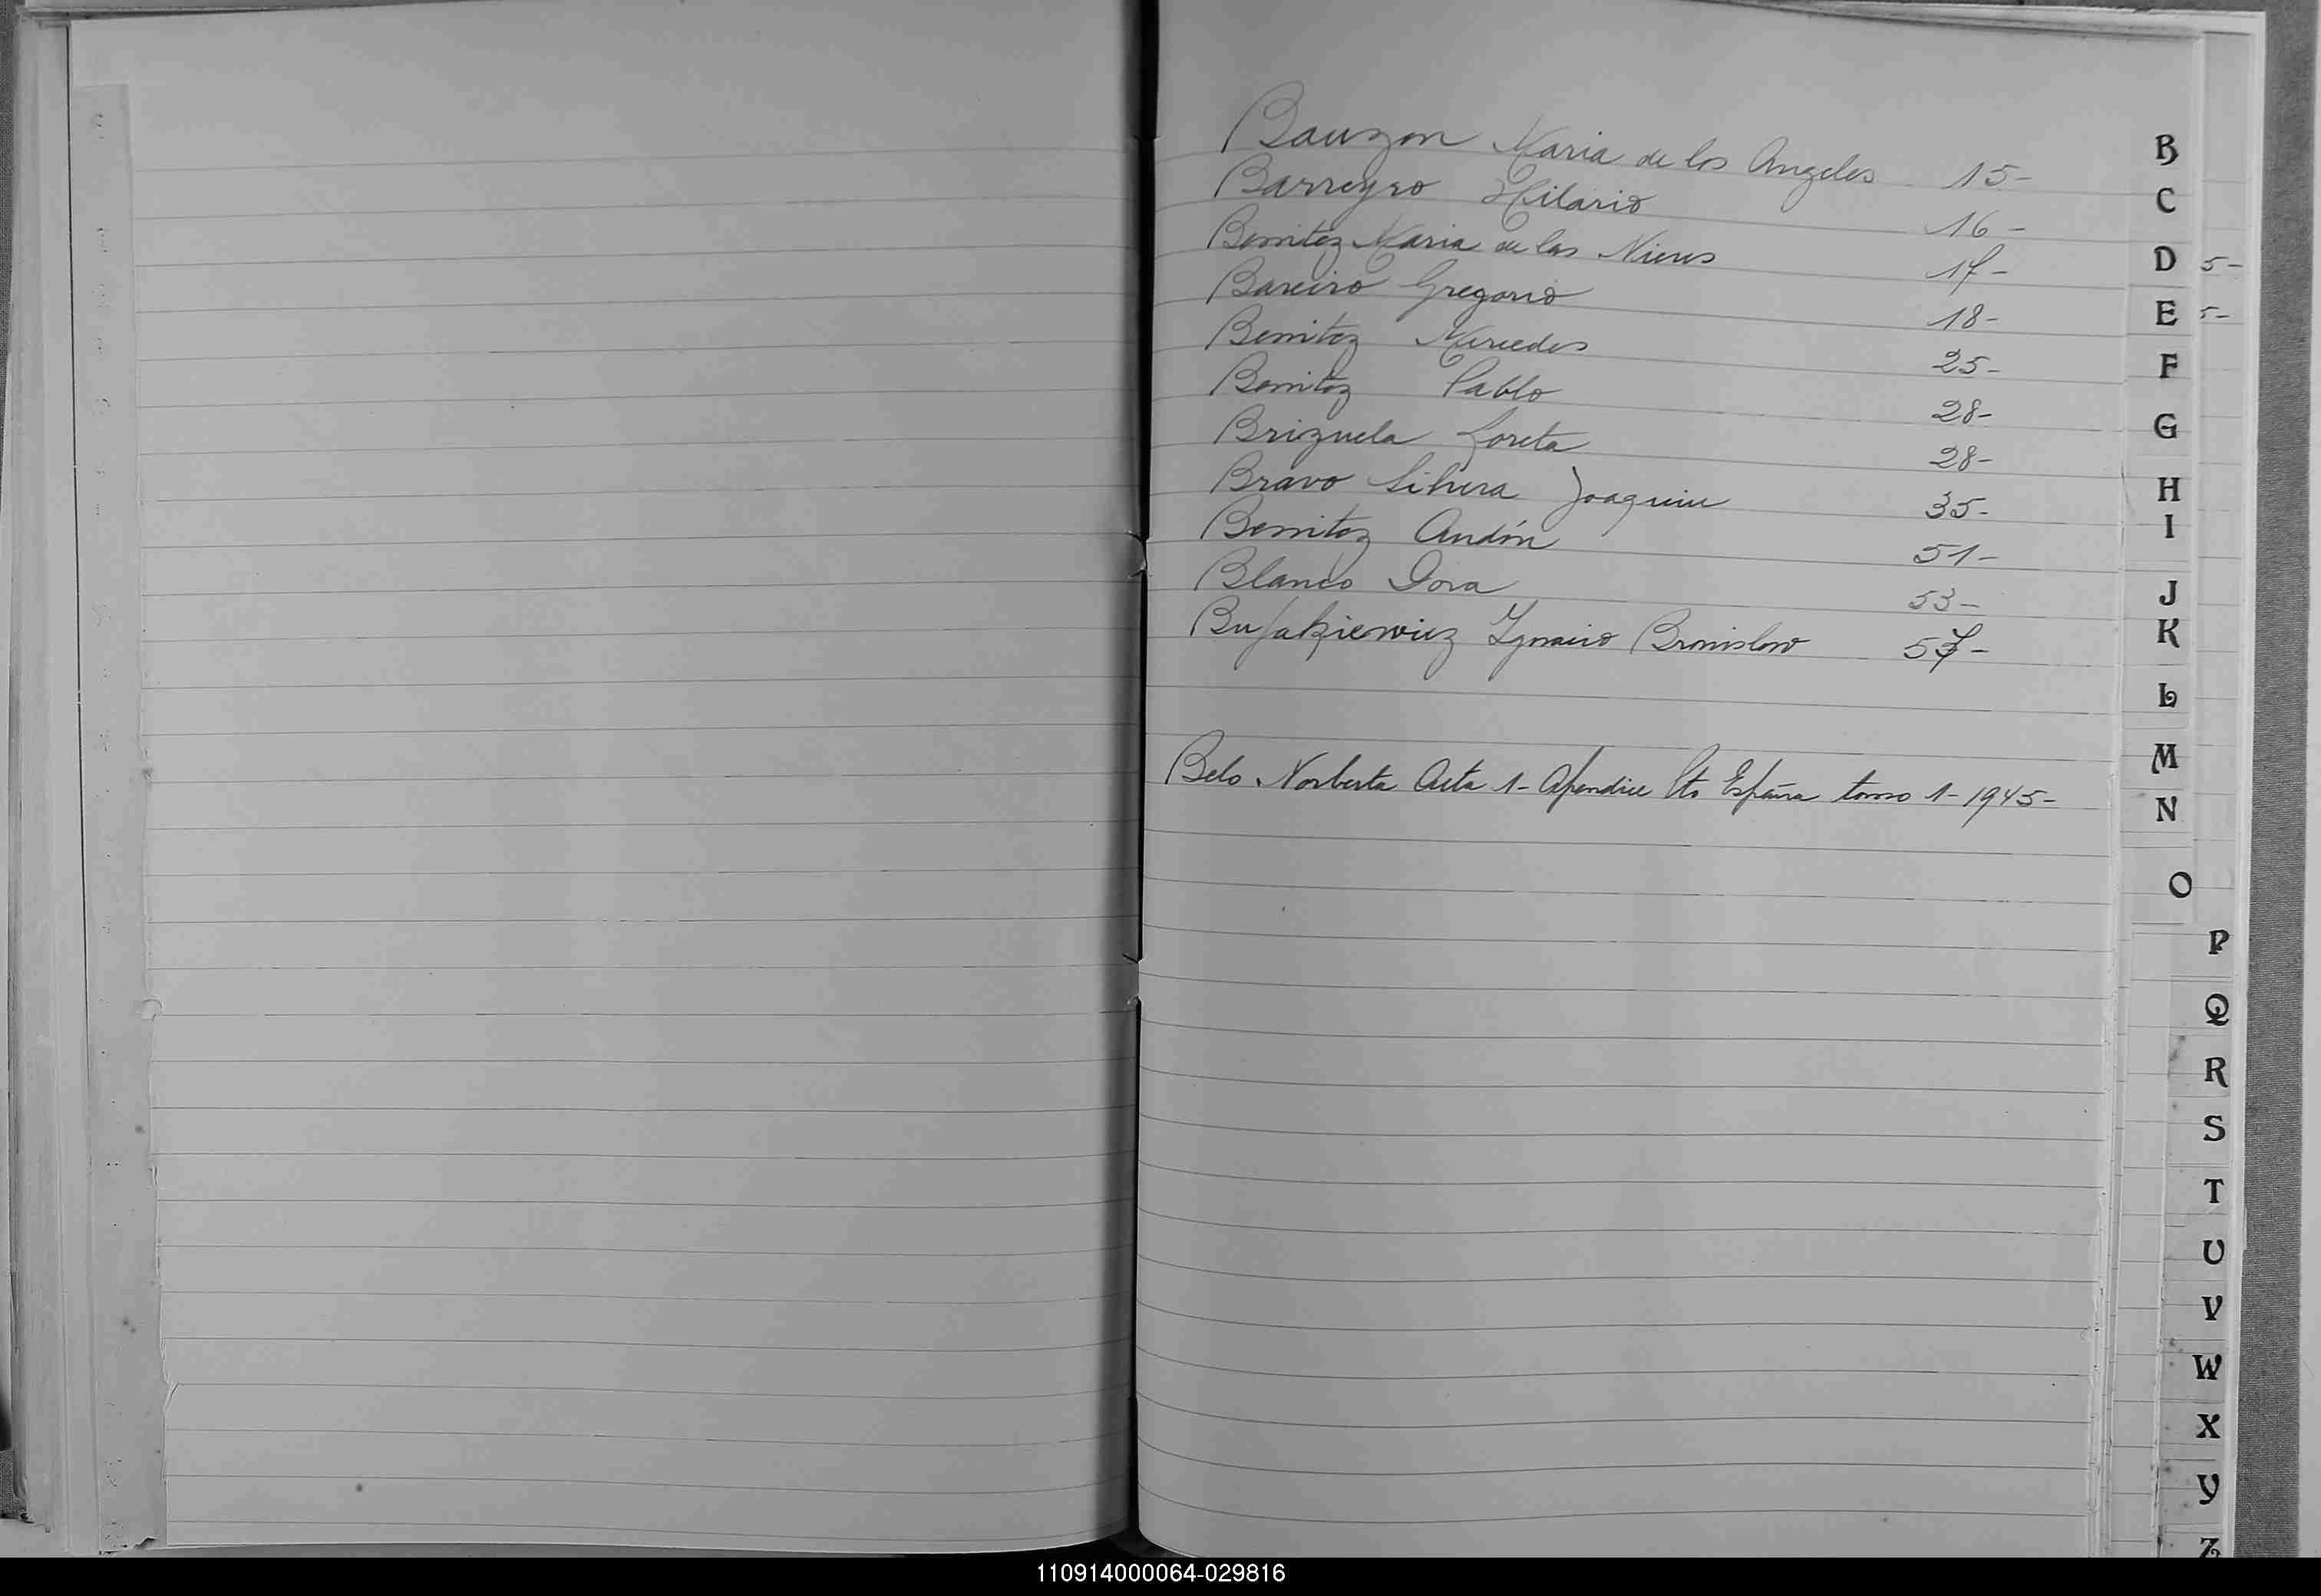 Bauzon Maria de los Angeles 15-
Barreyro Hilario 16-
Benitez Maria de las Nieves 17-
Bareiro Gregorio 18-
Benitez Mercedes 25-
Benitez Pablo 28-
Brizuela Loreta 28-
Bravo Joaquin 35-
Benitez Andón 51-
Blanco Dora 53-
Ignacio Bronislow 57-
Belo Norberta Acta 1- Apendice Pto España tomo 1- 1945-
B
C
D 5-
E 5-
F
G
H
I
J
K
L
M
N
O
P
Q
R
S
T
U
V
W
X
Y
Z
110914000064-029816